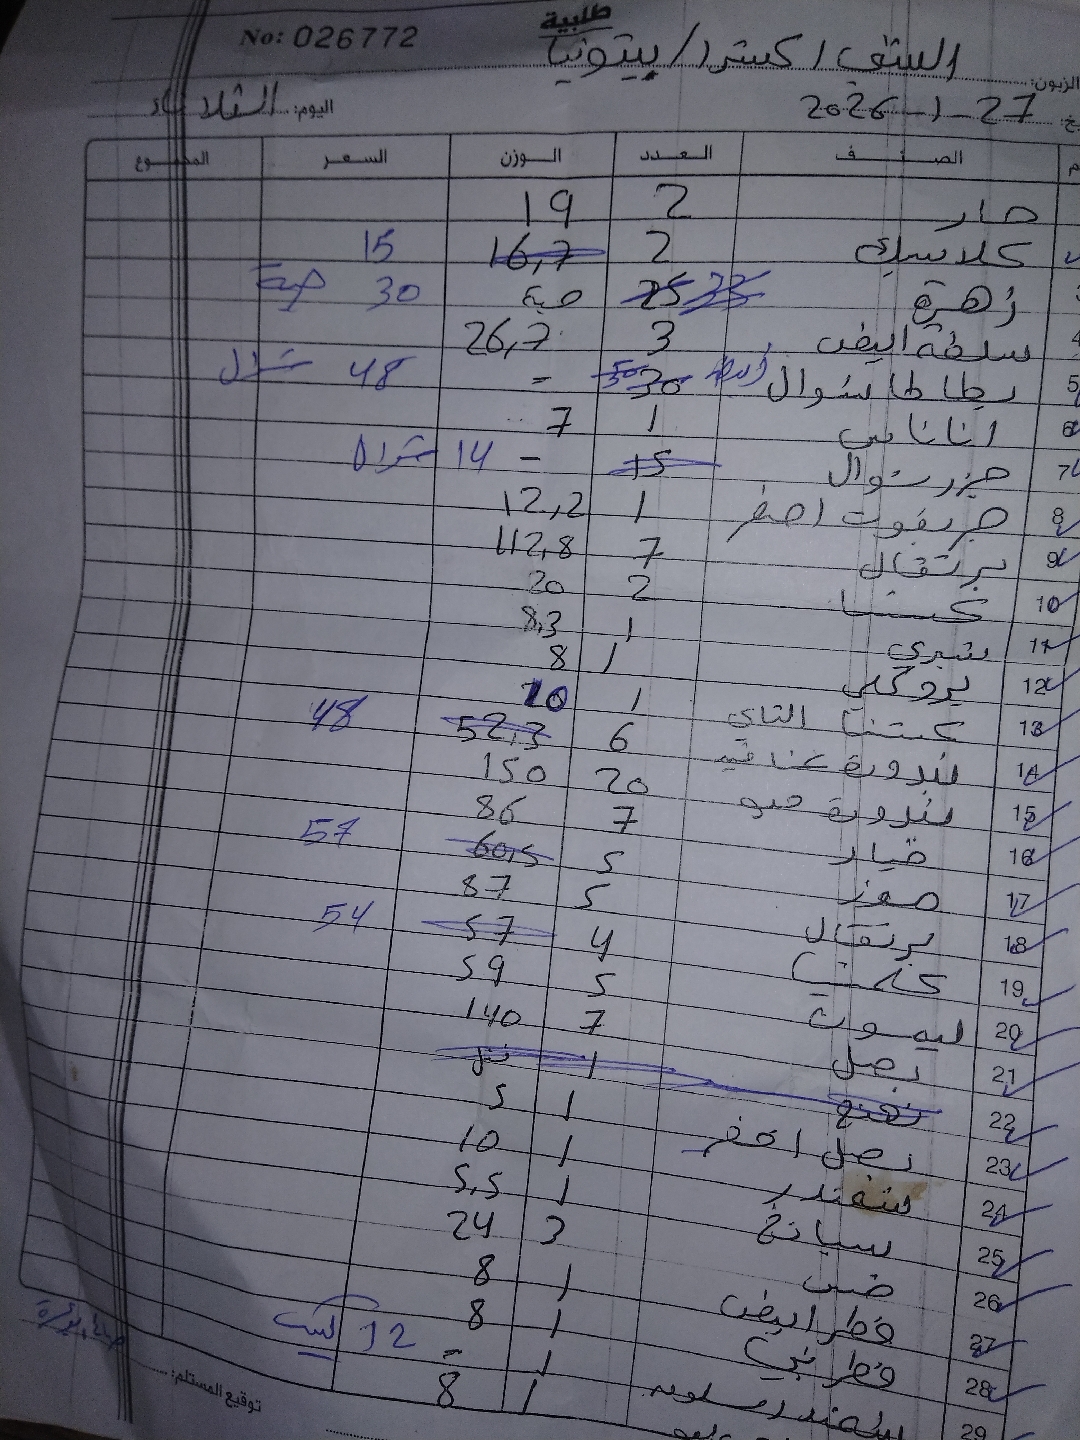 طلبية
No: 026772
الزبون: الشف اكسترا/بيتونيا
27-1-2026
اليوم: الثلاثاء
الصنف العدد الوزن السعر المجموع
2 19
كلاسيك 2 16,7 15
زهرة 25 حبة 30 حبة
4 3 26,7
5 بطاطا شوال 30 - 48 شوال
6 اناناس 1 7
7 جزر شوال 15 - 14 شوال
8 جريفوت اصفر 1 12,2
9 برتقال 7 112,8
10 2 20
11 شيري 1 8,3
12 بروكلي 1 8
13 1 10
14 بندورة عناقيد 6 52,3 48
15 بندورة حبو 20 150
16 خيار 7 86
17 موز 5 60,5 57
18 برتقال 5 87
19 4 57 54
20 ليمون 5 59
21 بصل 7 140
22 نعنع 1
23 بصل اخضر 1 5
24 شمندر 1 10
25 سبانخ 1 5,5
26 خس 3 24
27 فطر ابيض 1 8
28 فطر بني 1 8
29 1 - 12
1 8
توقيع المستلم: